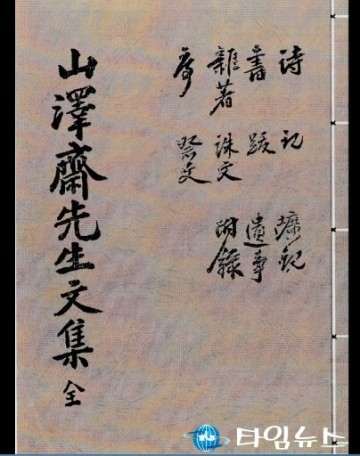 山澤齋先生文集 全
詩 記
書 跋 遺事
雜著 誄文 附錄
序 祭文
타임뉴스